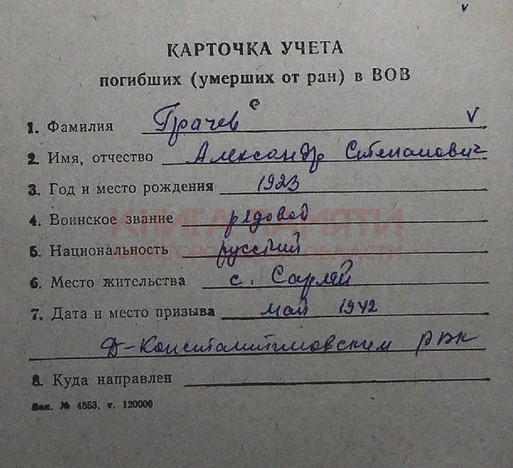 КАРТОЧКА УЧЕТА
погибших (умерших от ран) в ВОВ
1. Фамилия Грачев
2. Имя, отчество Александр Степанович
3. Год и место рождения 1923
4. Воинское звание рядовой
КНИГА ПАМЯТИ
5. Национальность русский
6. Место жительства с. Сарлей
7. Дата и место призыва май 1942
Д-Константиновским РВК
8. Куда направлен
Зак. № 4853, т. 120000